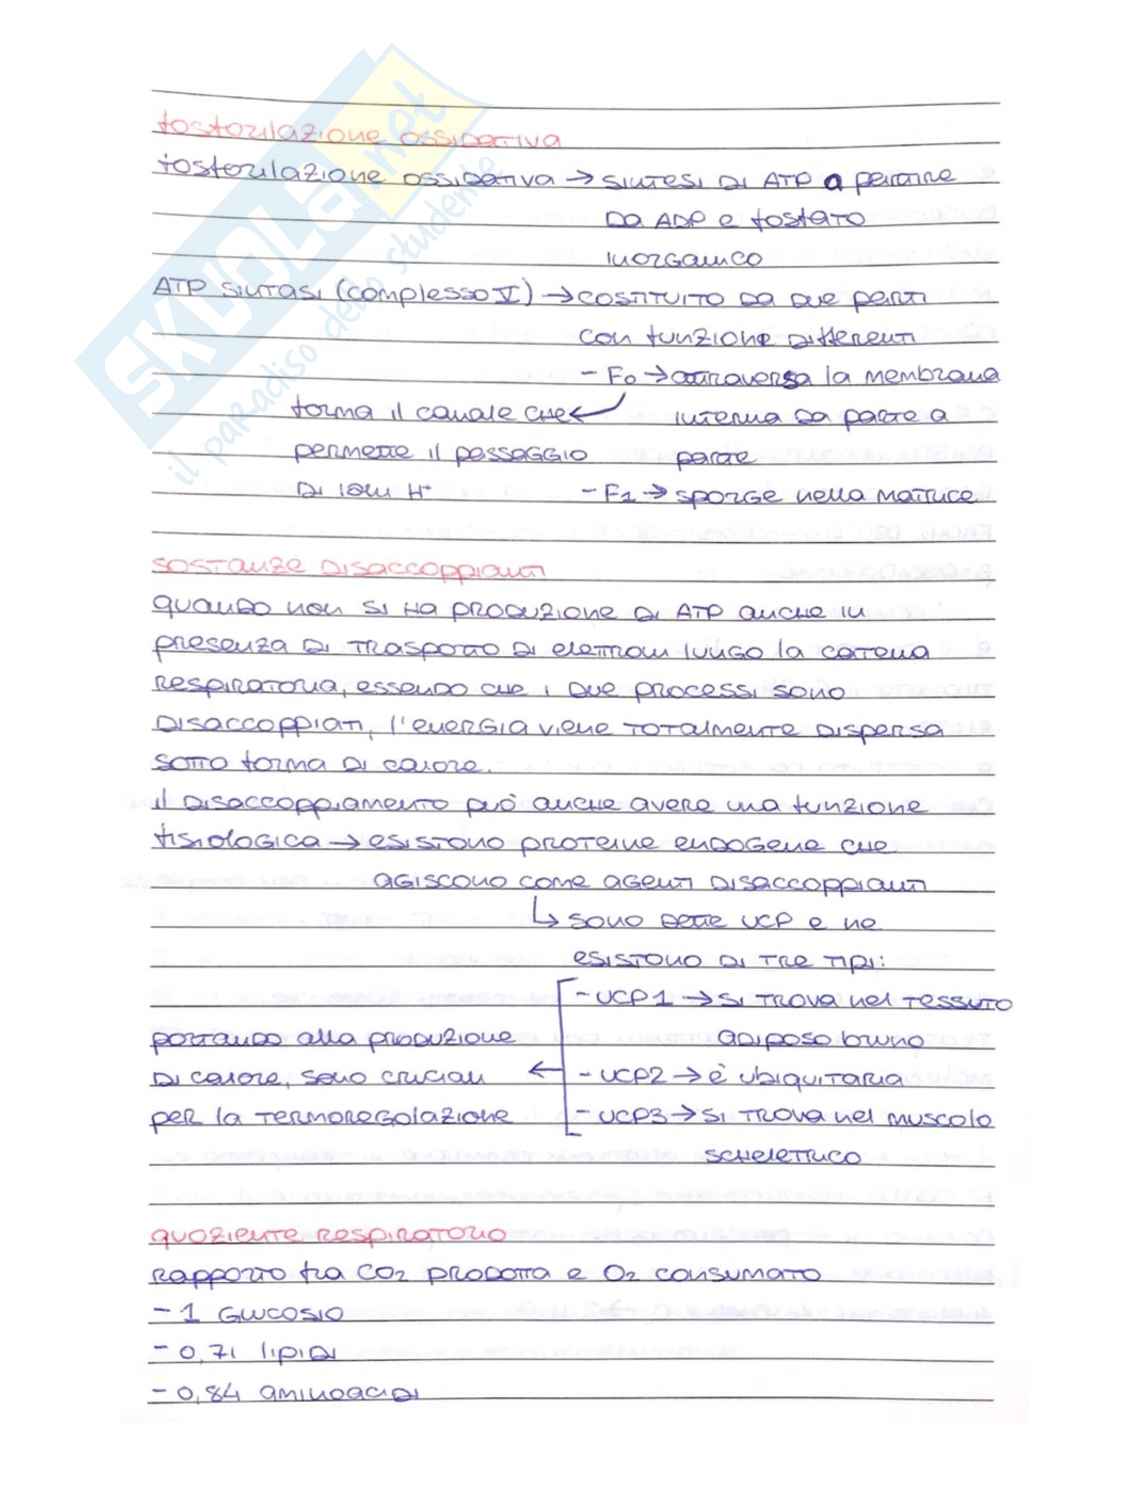 SKUOLA.net
il paradiso dello studente
fosforilazione ossidativa
fosforilazione ossidativa → sintesi di ATP a partire
da ADP e fosfato
inorganico
ATP sintasi (complesso V) → costituito da due parti
con funzione differenti
- F0 → attraversa la membrana
forma il canale che ← interna da parte a
permette il passaggio parte
di ioni H+ - F1 → sporge nella matrice
sostanze disaccoppianti
quando non si ha produzione di ATP anche in
presenza di trasporto di elettroni lungo la catena
respiratoria, essendo che i due processi sono
disaccoppiati, l'energia viene totalmente dispersa
sotto forma di calore.
il disaccoppiamento può anche avere una funzione
fisiologica → esistono proteine endogene che
agiscono come agenti disaccoppianti
↳ sono dette UCP e ne
esistono di tre tipi:
- UCP1 → si trova nel tessuto
portando alla produzione adiposo bruno
di calore, sono cruciali ← - UCP2 → è ubiquitaria
per la termoregolazione - UCP3 → si trova nel muscolo
scheletrico
quoziente respiratorio
rapporto fra CO2 prodotta e O2 consumato
- 1 glucosio
- 0,71 lipidi
- 0,84 aminoacidi